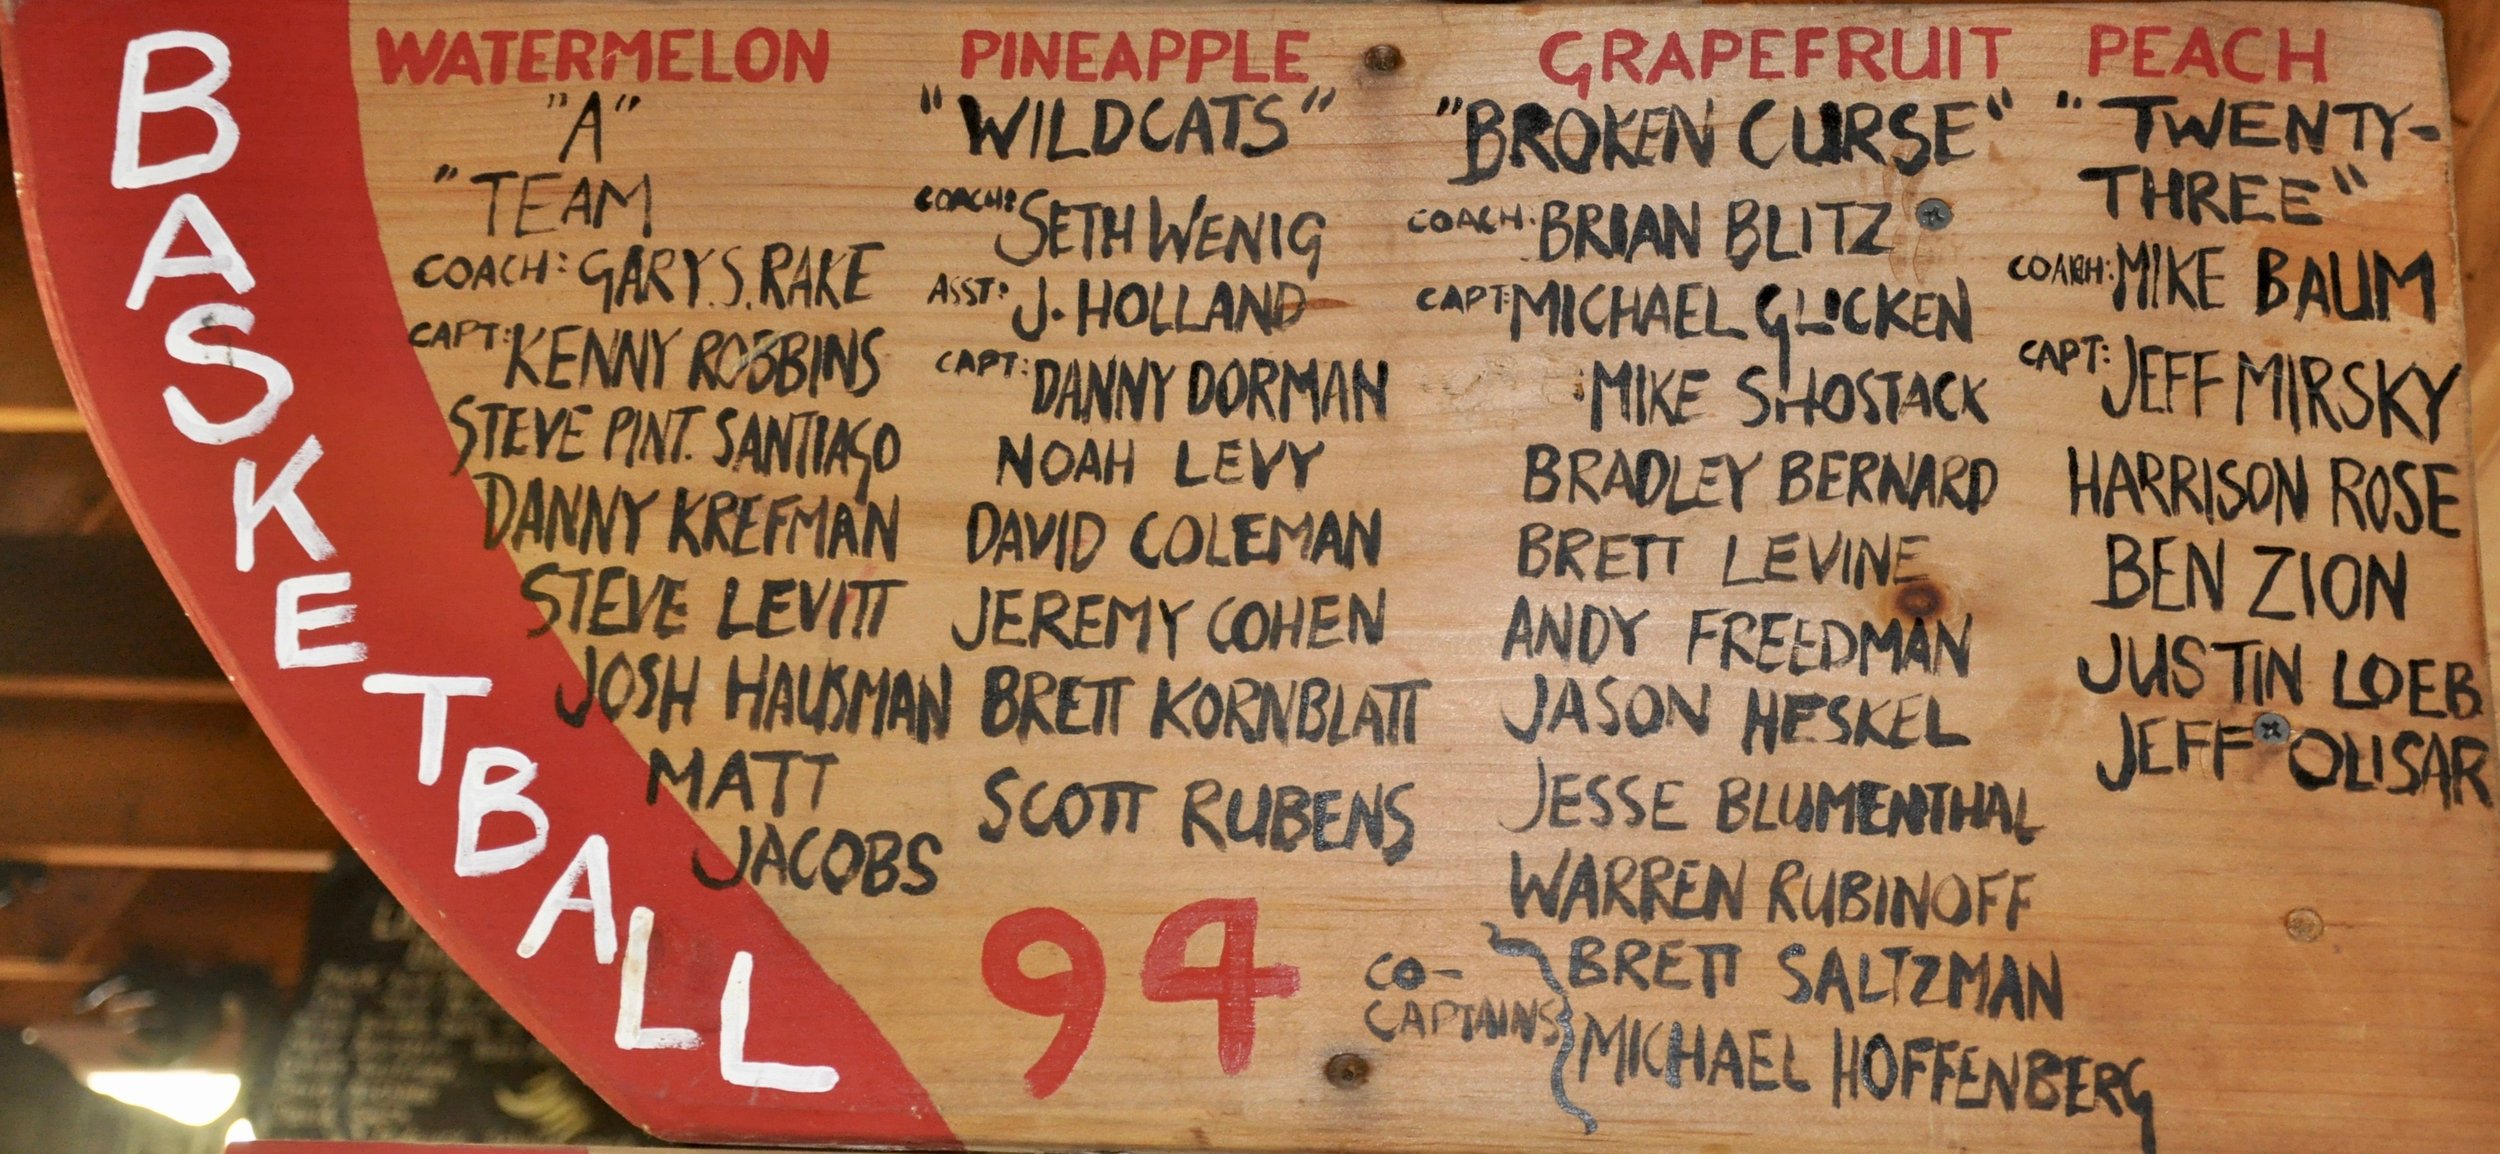 BASKETBALL
WATERMELON
"A"
"TEAM
COACH: GARY.S. RAKE
CAPT: KENNY ROBBINS
STEVE PINT. SANTIAGO
DANNY KREFMAN
STEVE LEVITT
JOSH HAUSMAN
MATT
JACOBS
PINEAPPLE
"WILDCATS"
COACH: SETH WENIG
ASST: J. HOLLAND
CAPT: DANNY DORMAN
NOAH LEVY
DAVID COLEMAN
JEREMY COHEN
BRETT KORNBLATT
SCOTT RUBENS
94
GRAPEFRUIT
"BROKEN CURSE"
COACH: BRIAN BLITZ
CAPT: MICHAEL GLICKEN
MIKE SHOSTACK
BRADLEY BERNARD
BRETT LEVINE
ANDY FREEDMAN
JASON HESKEL
JESSE BLUMENTHAL
WARREN RUBINOFF
CO-
CAPTAINS
BRETT SALTZMAN
MICHAEL HOFFENBERG
PEACH
"TWENTY-
THREE"
COACH: MIKE BAUM
CAPT: JEFF MIRSKY
HARRISON ROSE
BEN ZION
JUSTIN LOEB
JEFF OLISAR